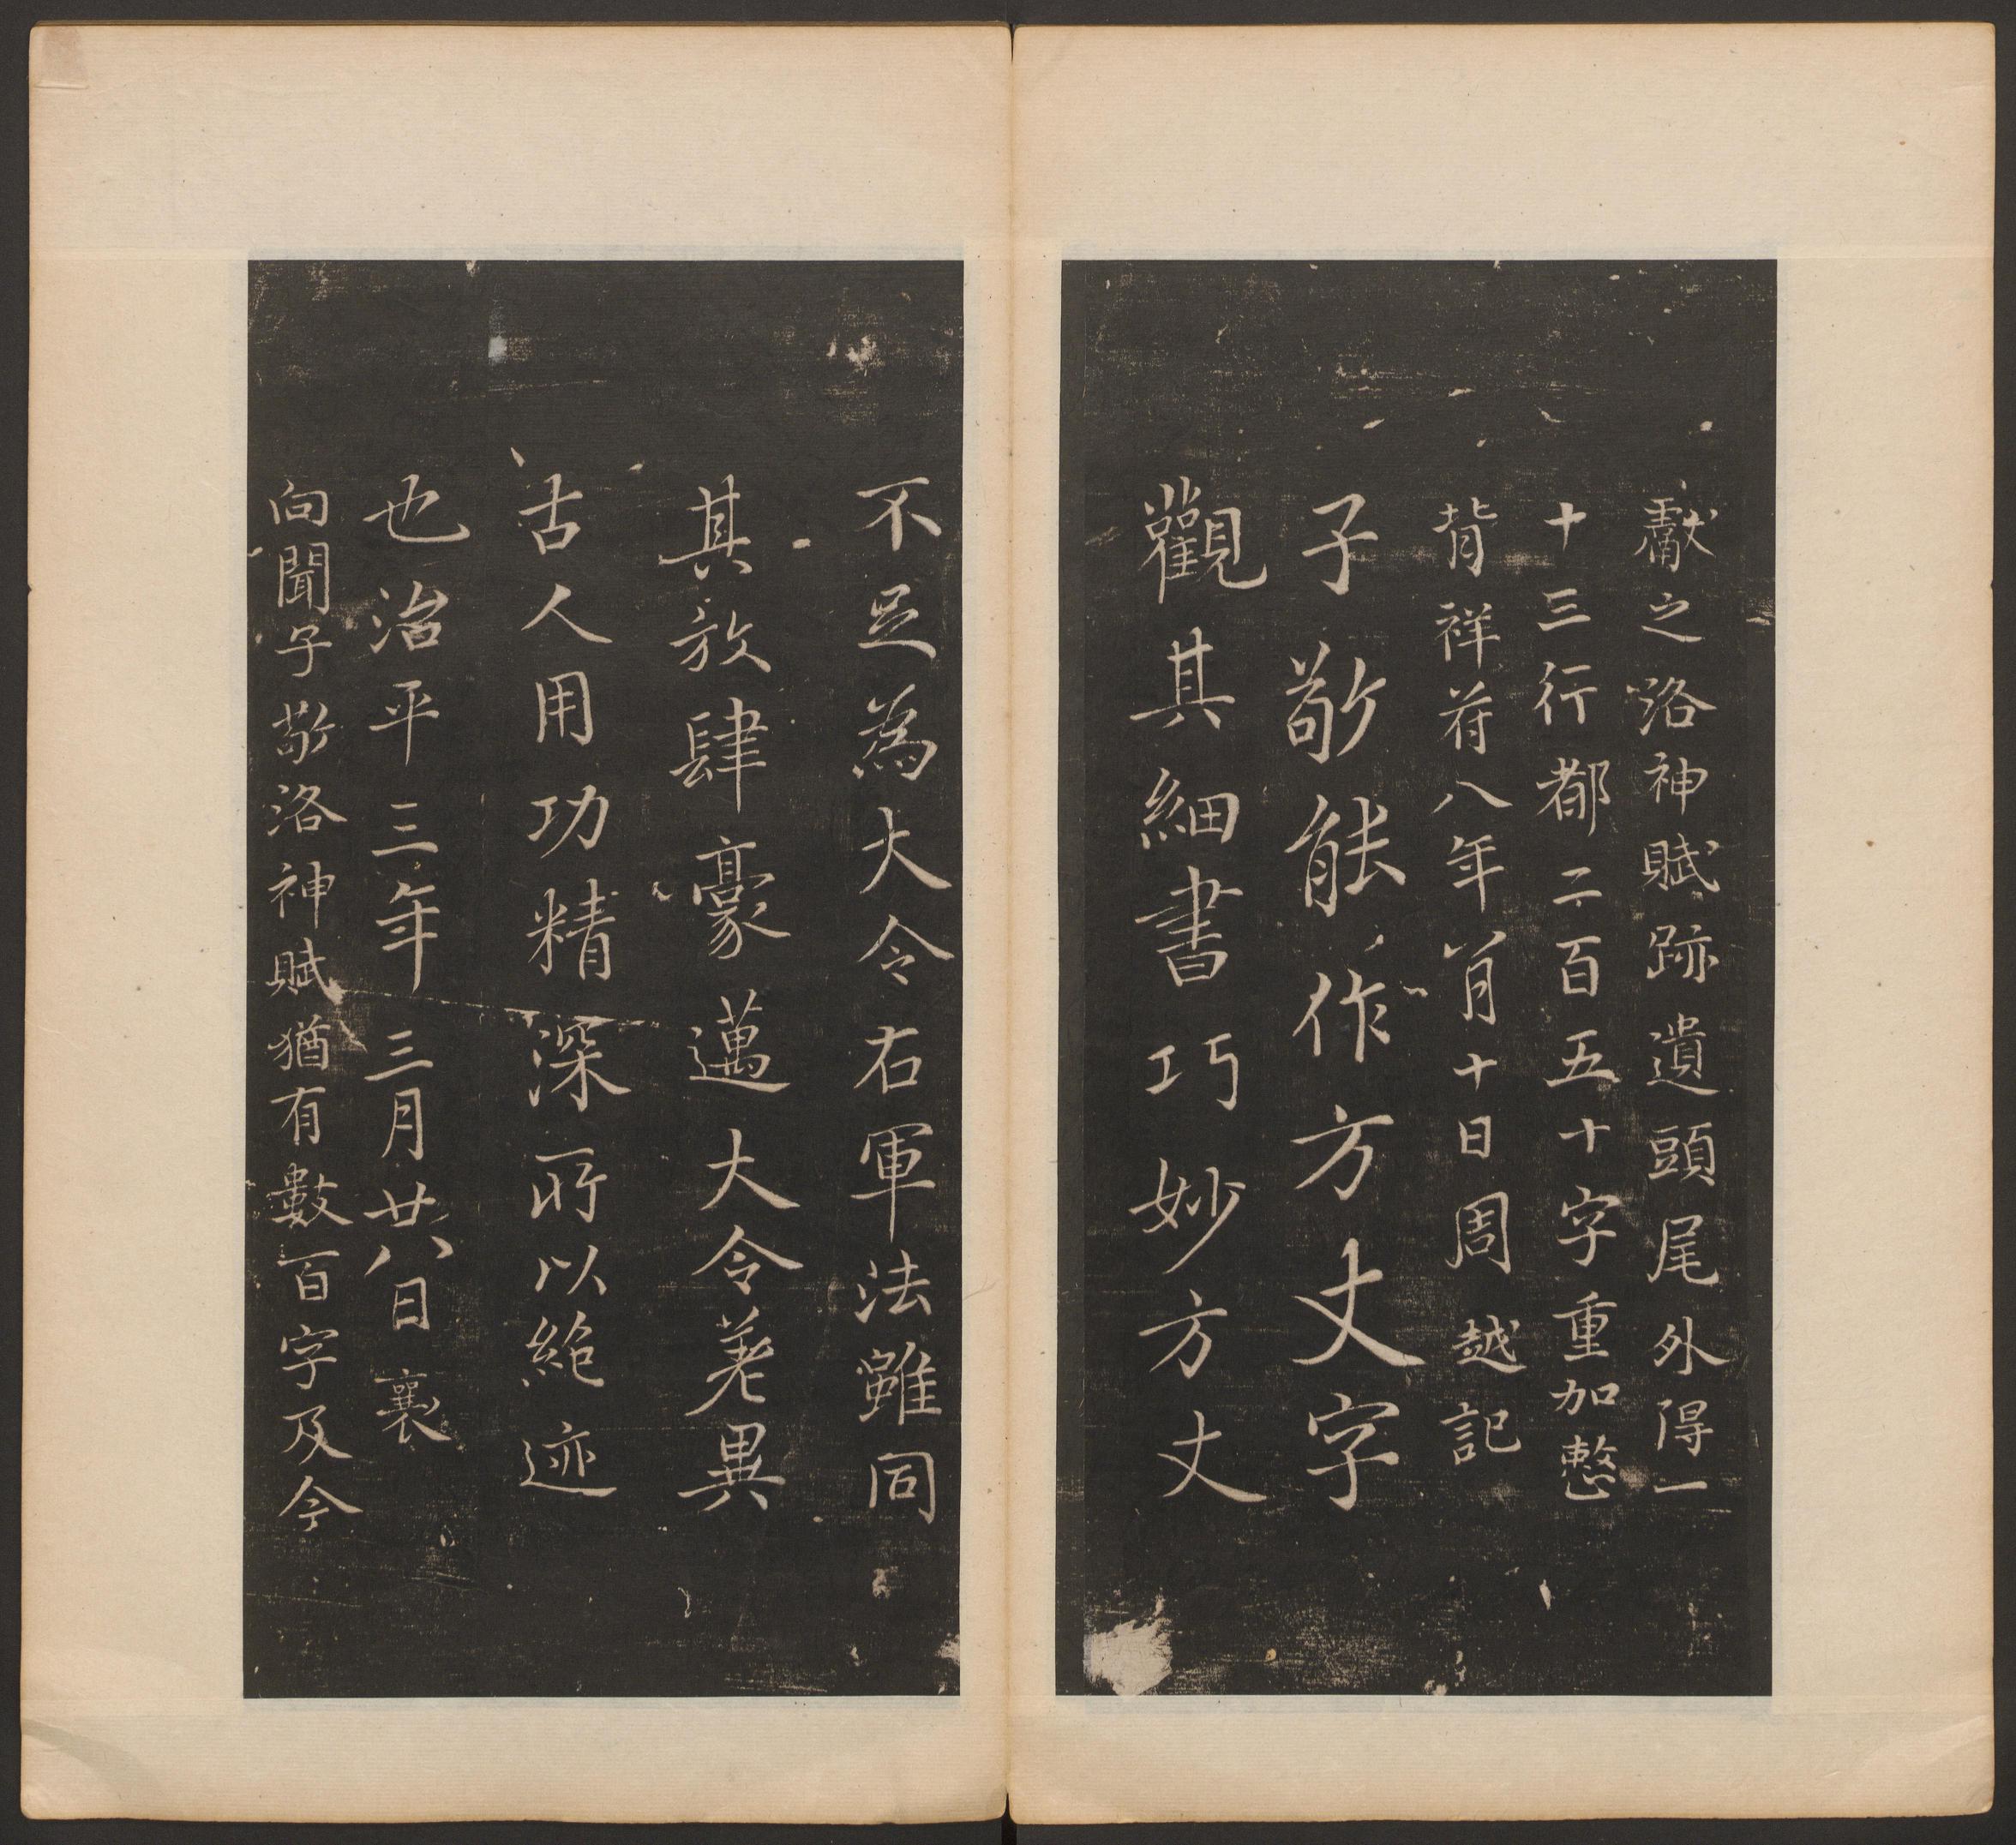 獻之洛神賦跡遺頭尾外得一
十三行都二百五十字重加整
背祥符八年首月十日周越記
子敬能作方丈字
觀其細書巧妙方丈
不足為大令右軍法雖同
其放肆豪邁大令差異
古人用功精深所以絶迹
也治平三年三月廿八日襄
向聞子敬洛神賦猶有數百字及今